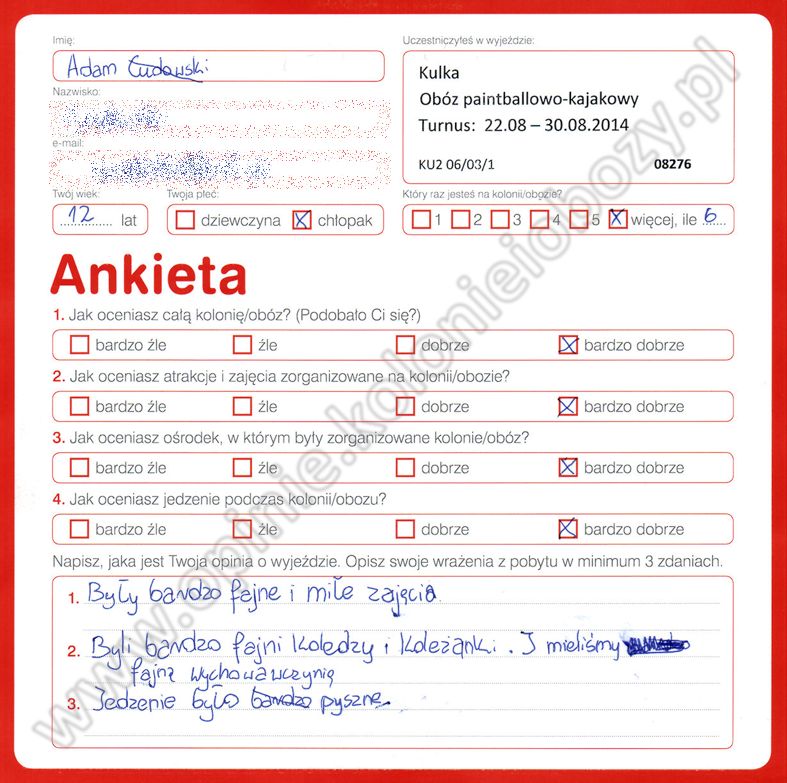 Imię:
Adam Cudowski
Nazwisko:
e-mail:
Twój wiek:
12 lat
Twoja płeć:
dziewczyna chłopak
Uczestniczyłeś w wyjeździe:
Kulka
Obóz paintballowo-kajakowy
Turnus: 22.08 – 30.08.2014
KU2 06/03/1 08276
Który raz jesteś na kolonii/obozie?
1 2 3 4 5 więcej, ile 6
Ankieta
1. Jak oceniasz całą kolonię/obóz? (Podobało Ci się?)
bardzo źle źle dobrze bardzo dobrze
2. Jak oceniasz atrakcje i zajęcia zorganizowane na kolonii/obozie?
bardzo źle źle dobrze bardzo dobrze
3. Jak oceniasz ośrodek, w którym były zorganizowane kolonie/obóz?
bardzo źle źle dobrze bardzo dobrze
4. Jak oceniasz jedzenie podczas kolonii/obozu?
bardzo źle źle dobrze bardzo dobrze
Napisz, jaka jest Twoja opinia o wyjeździe. Opisz swoje wrażenia z pobytu w minimum 3 zdaniach.
1. Były bardzo fajne i miłe zajęcia
2. Byli bardzo fajni Koledzy i Koleżanki. I mieliśmy
fajną wychowawczynię
3. Jedzenie było bardzo pyszne.
www.opinie.kolonieiobozy.pl